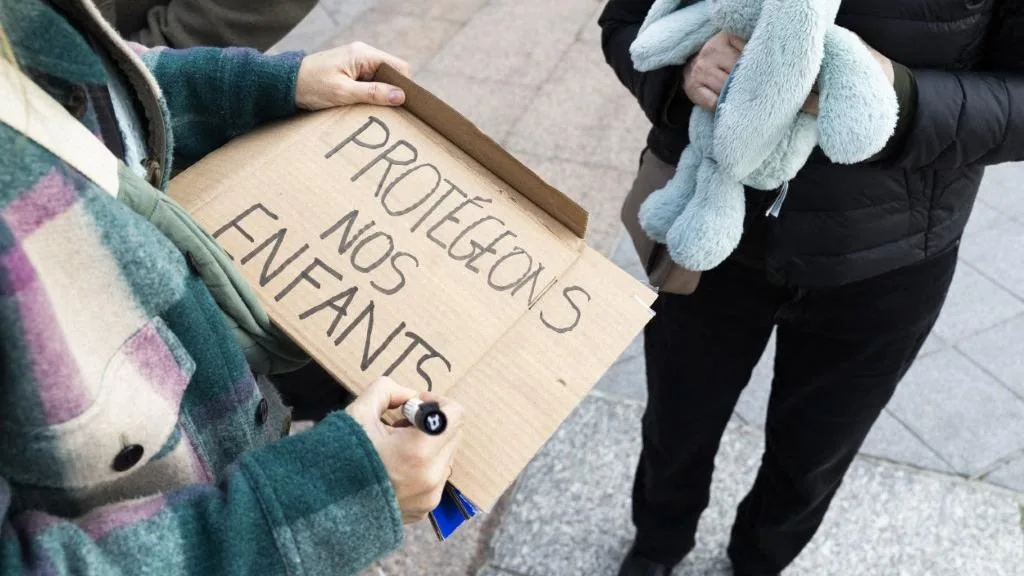 PROTÉGEONS
NOS
ENFANTS